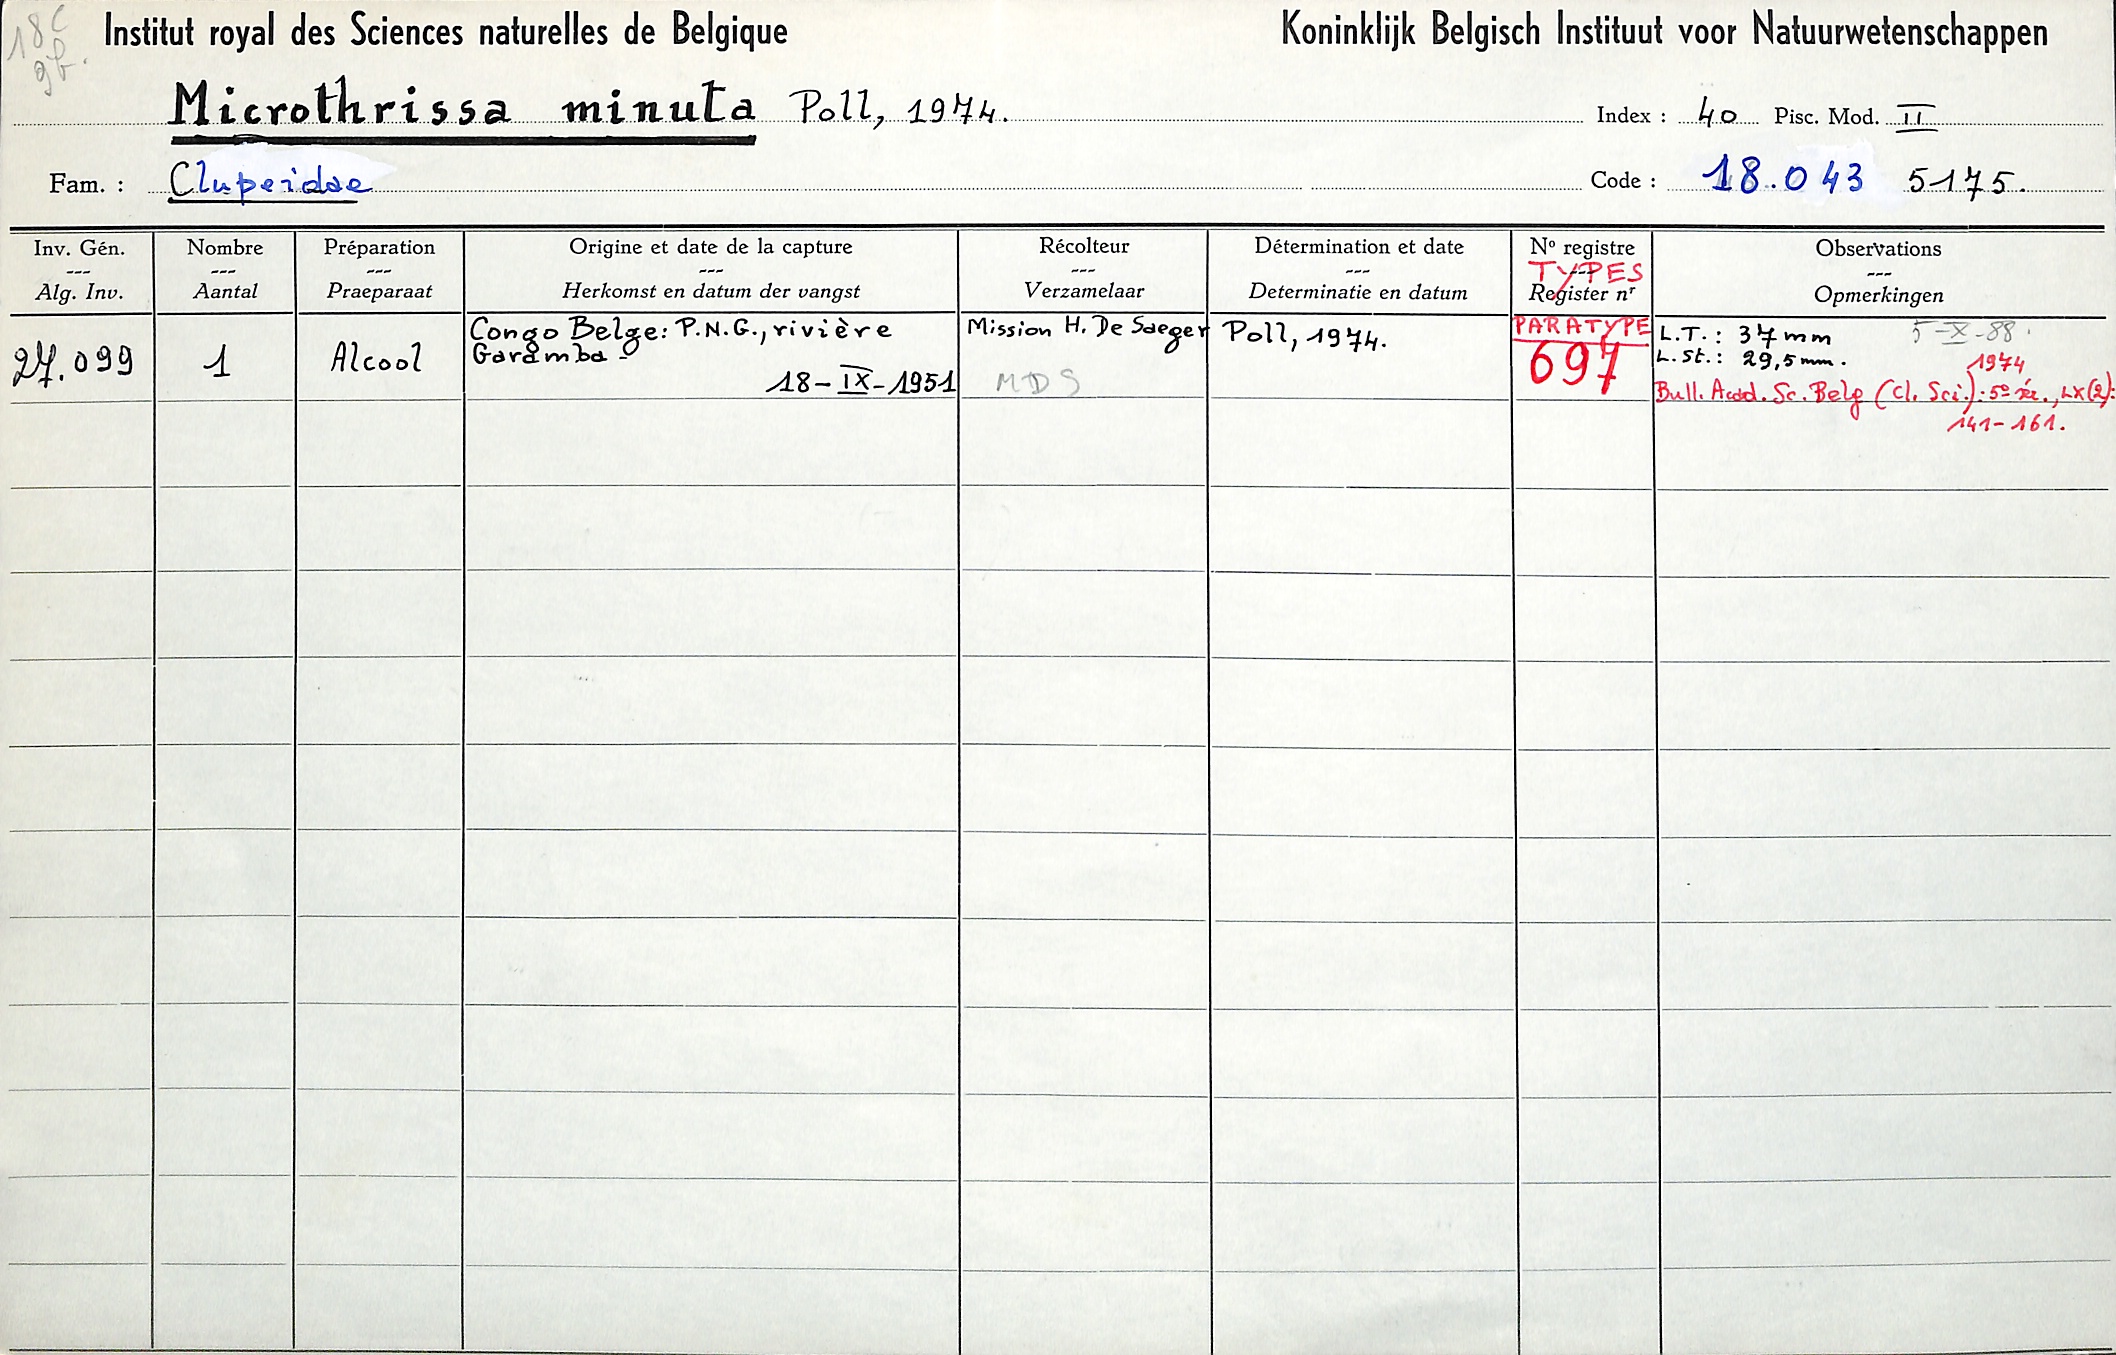 18C
gb.
Institut royal des Sciences naturelles de Belgique
Koninklijk Belgisch Instituut voor Natuurwetenschappen
Microthrissa minuta Poll, 1974.
Index : 40 Pisc. Mod. II
Fam. : Clupeidae
Code : 18.043 5175.
Inv. Gén.
---
Alg. Inv.
Nombre
---
Aantal
Préparation
---
Praeparaat
Origine et date de la capture
---
Herkomst en datum der vangst
Récolteur
---
Verzamelaar
Détermination et date
---
Determinatie en datum
No registre
TYPES
Register nr
Observations
---
Opmerkingen
27.099
1
Alcool
Congo Belge: P.N.G., rivière
Garamba -
18-IX-1951
Mission H. De Saeger
MDS
Poll, 1974.
PARATYPE
697
L.T. : 37 mm 5-X-88.
L. St. : 29,5 mm.
1974
Bull. Acad. Sc. Belg (Cl. Sci.): 5e sér., LX(2):
141-161.